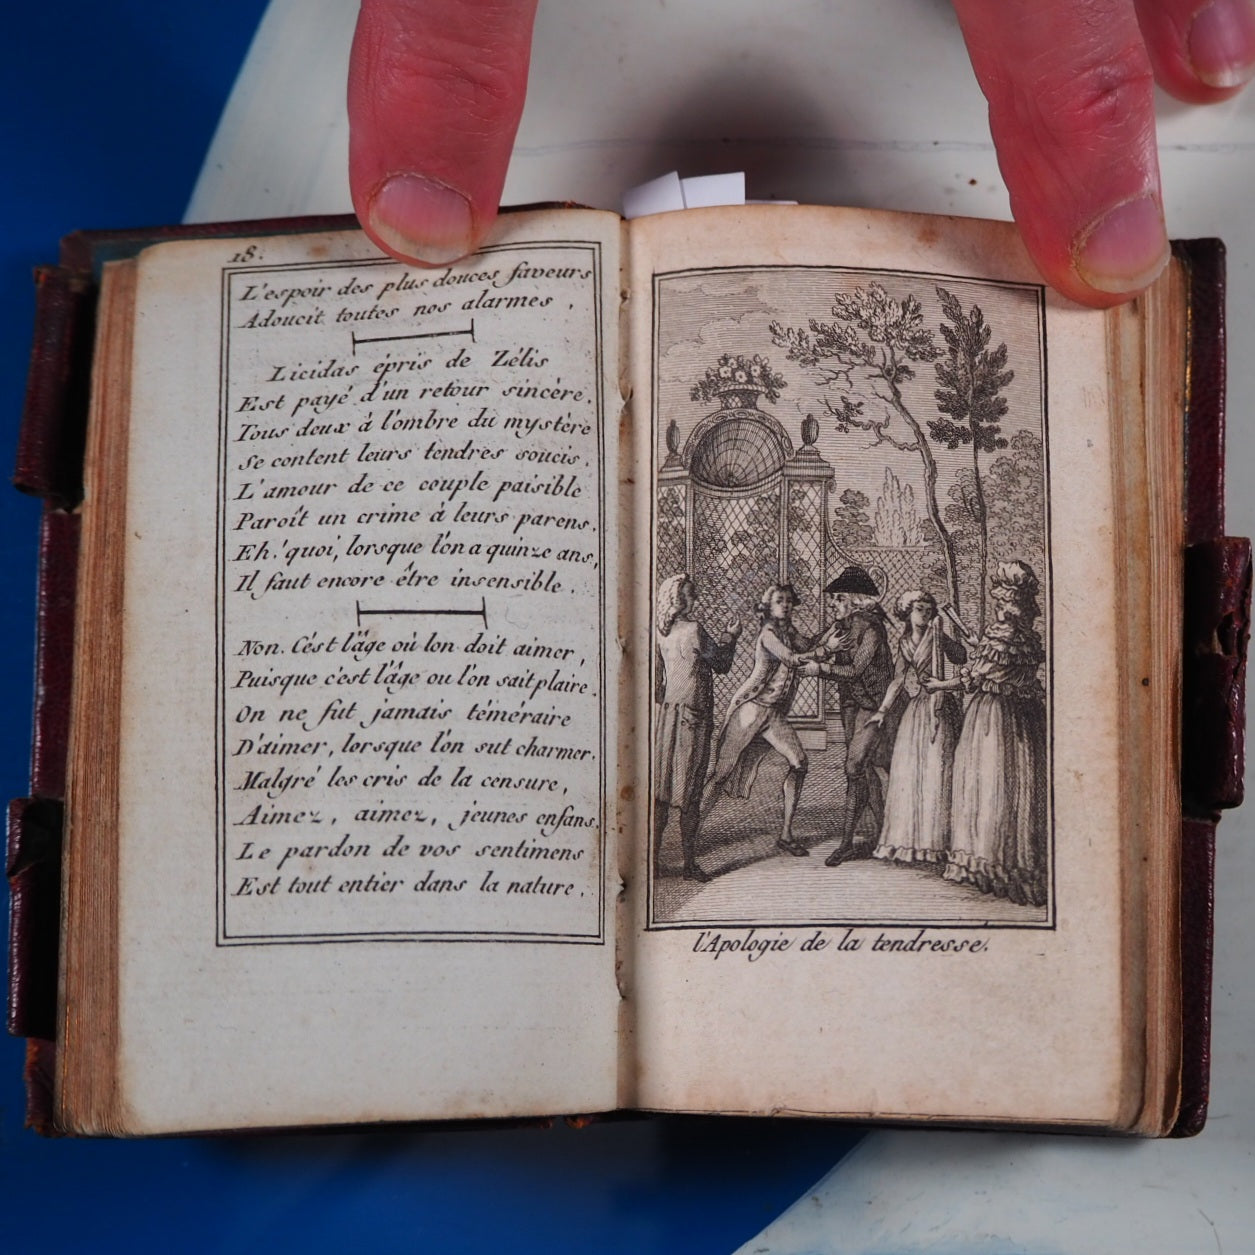 18.
L'espoir des plus douces faveurs
Adoucit toutes nos alarmes,
Licidas épris de Zélis
Est payé d'un retour sincère.
Tous deux à l'ombre du mystère
Se content leurs tendres soucis.
L'amour de ce couple paisible
Paroît un crime à leurs parens.
Eh! quoi, lorsque l'on a quinze ans,
Il faut encore être insensible.
Non. C'est l'âge où lon doit aimer,
Puisque c'est l'âge ou l'on sait plaire.
On ne fut jamais téméraire
D'aimer, lorsque l'on sut charmer.
Malgré les cris de la censure,
Aimez, aimez, jeunes enfans,
Le pardon de vos sentimens
Est tout entier dans la nature.
l'Apologie de la tendresse.